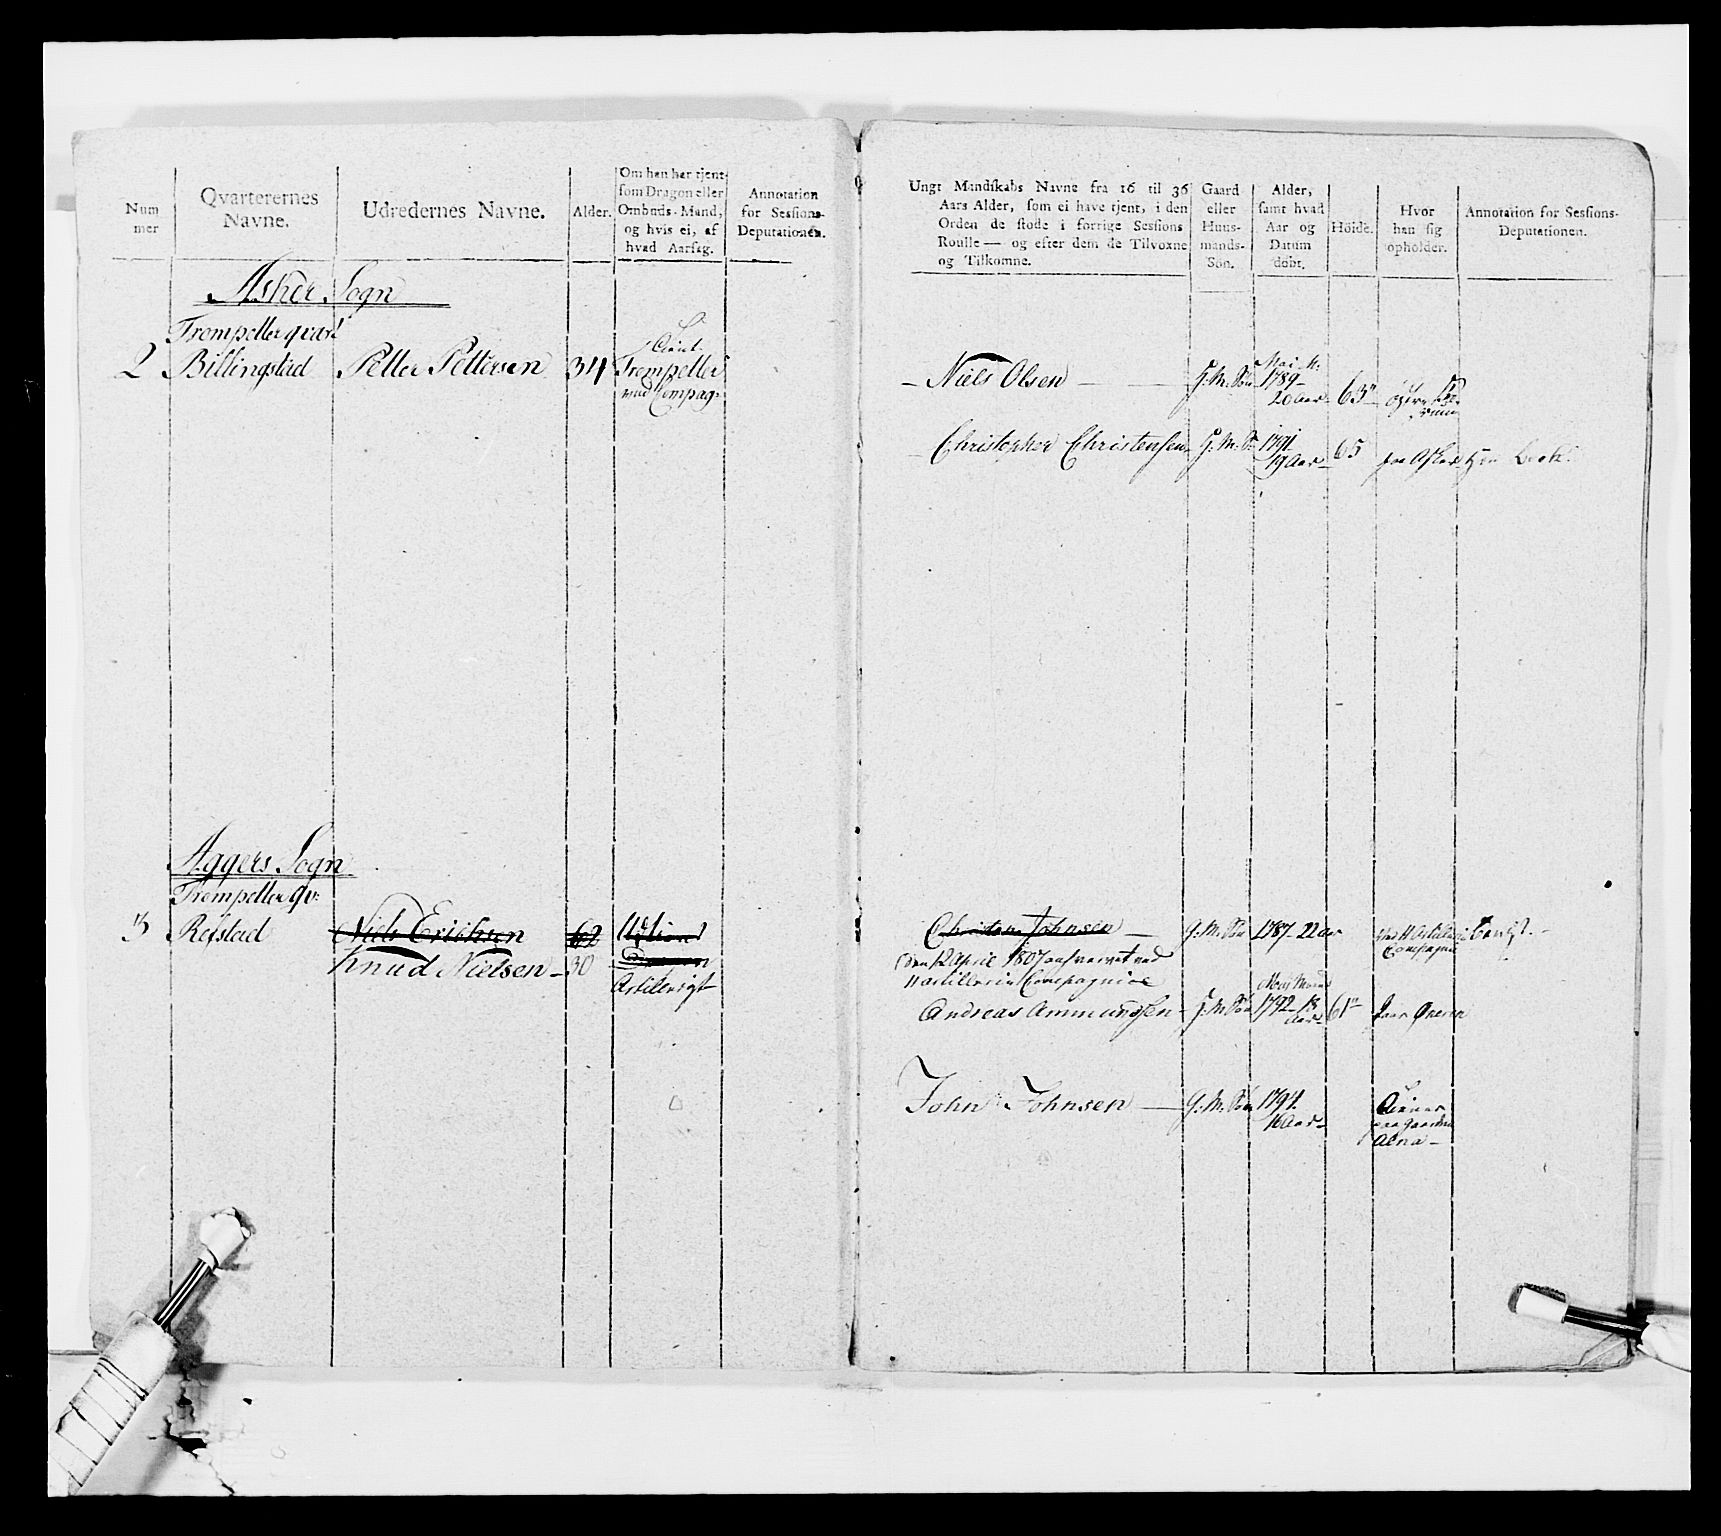 Num
mer
Qvarterernes
Navne.
Udredernes Navne.
Alder.
Om han har tjent
som Dragon eller
Ombuds-Mand,
og hvis ei, af
hvad Aarsag.
Annotation
for Sessions-
Deputationen.
Asker Sogn
Trompetter qvart
2 Billingstad Petter Pettersen 34 Trompetter
ved Compag:
Aggers Sogn
Trompetter qv:
3 Refstad Niels Erichsen 62 Udtient
Knud Nielsen - 30
Artillerist
Ungt Mandskabs Navne fra 16 til 36
Aars Alder, som ei have tjent, i den
Orden de stode i forrige Sessions
Roulle — og efter dem de Tilvoxne
og Tilkomne.
Gaard
eller
Huus-
mands-
Søn.
Alder,
samt hvad
Aar og
Datum
døbt.
Höide.
Hvor
han sig
opholder.
Annotation for Sessions-
Deputationen.
- Niels Olsen - G. M. Søn 1789
20 Aar 63"
- Christopher Christensen G. M. S. 1791
19 Aar 65 paa Asker
Christen Johnsen - G. M. Søn 1787 - 22 aar ved Artilleri
Compagni
den 12 April 1807 ved
Artillerie Compagnie
Andreas Ammundsen - G. M. Søn 1792 - 18
Aar 61"
John Johnsen - G. M. Søn 1794
16 Aar Tiener
paa Gaarden
Alna -